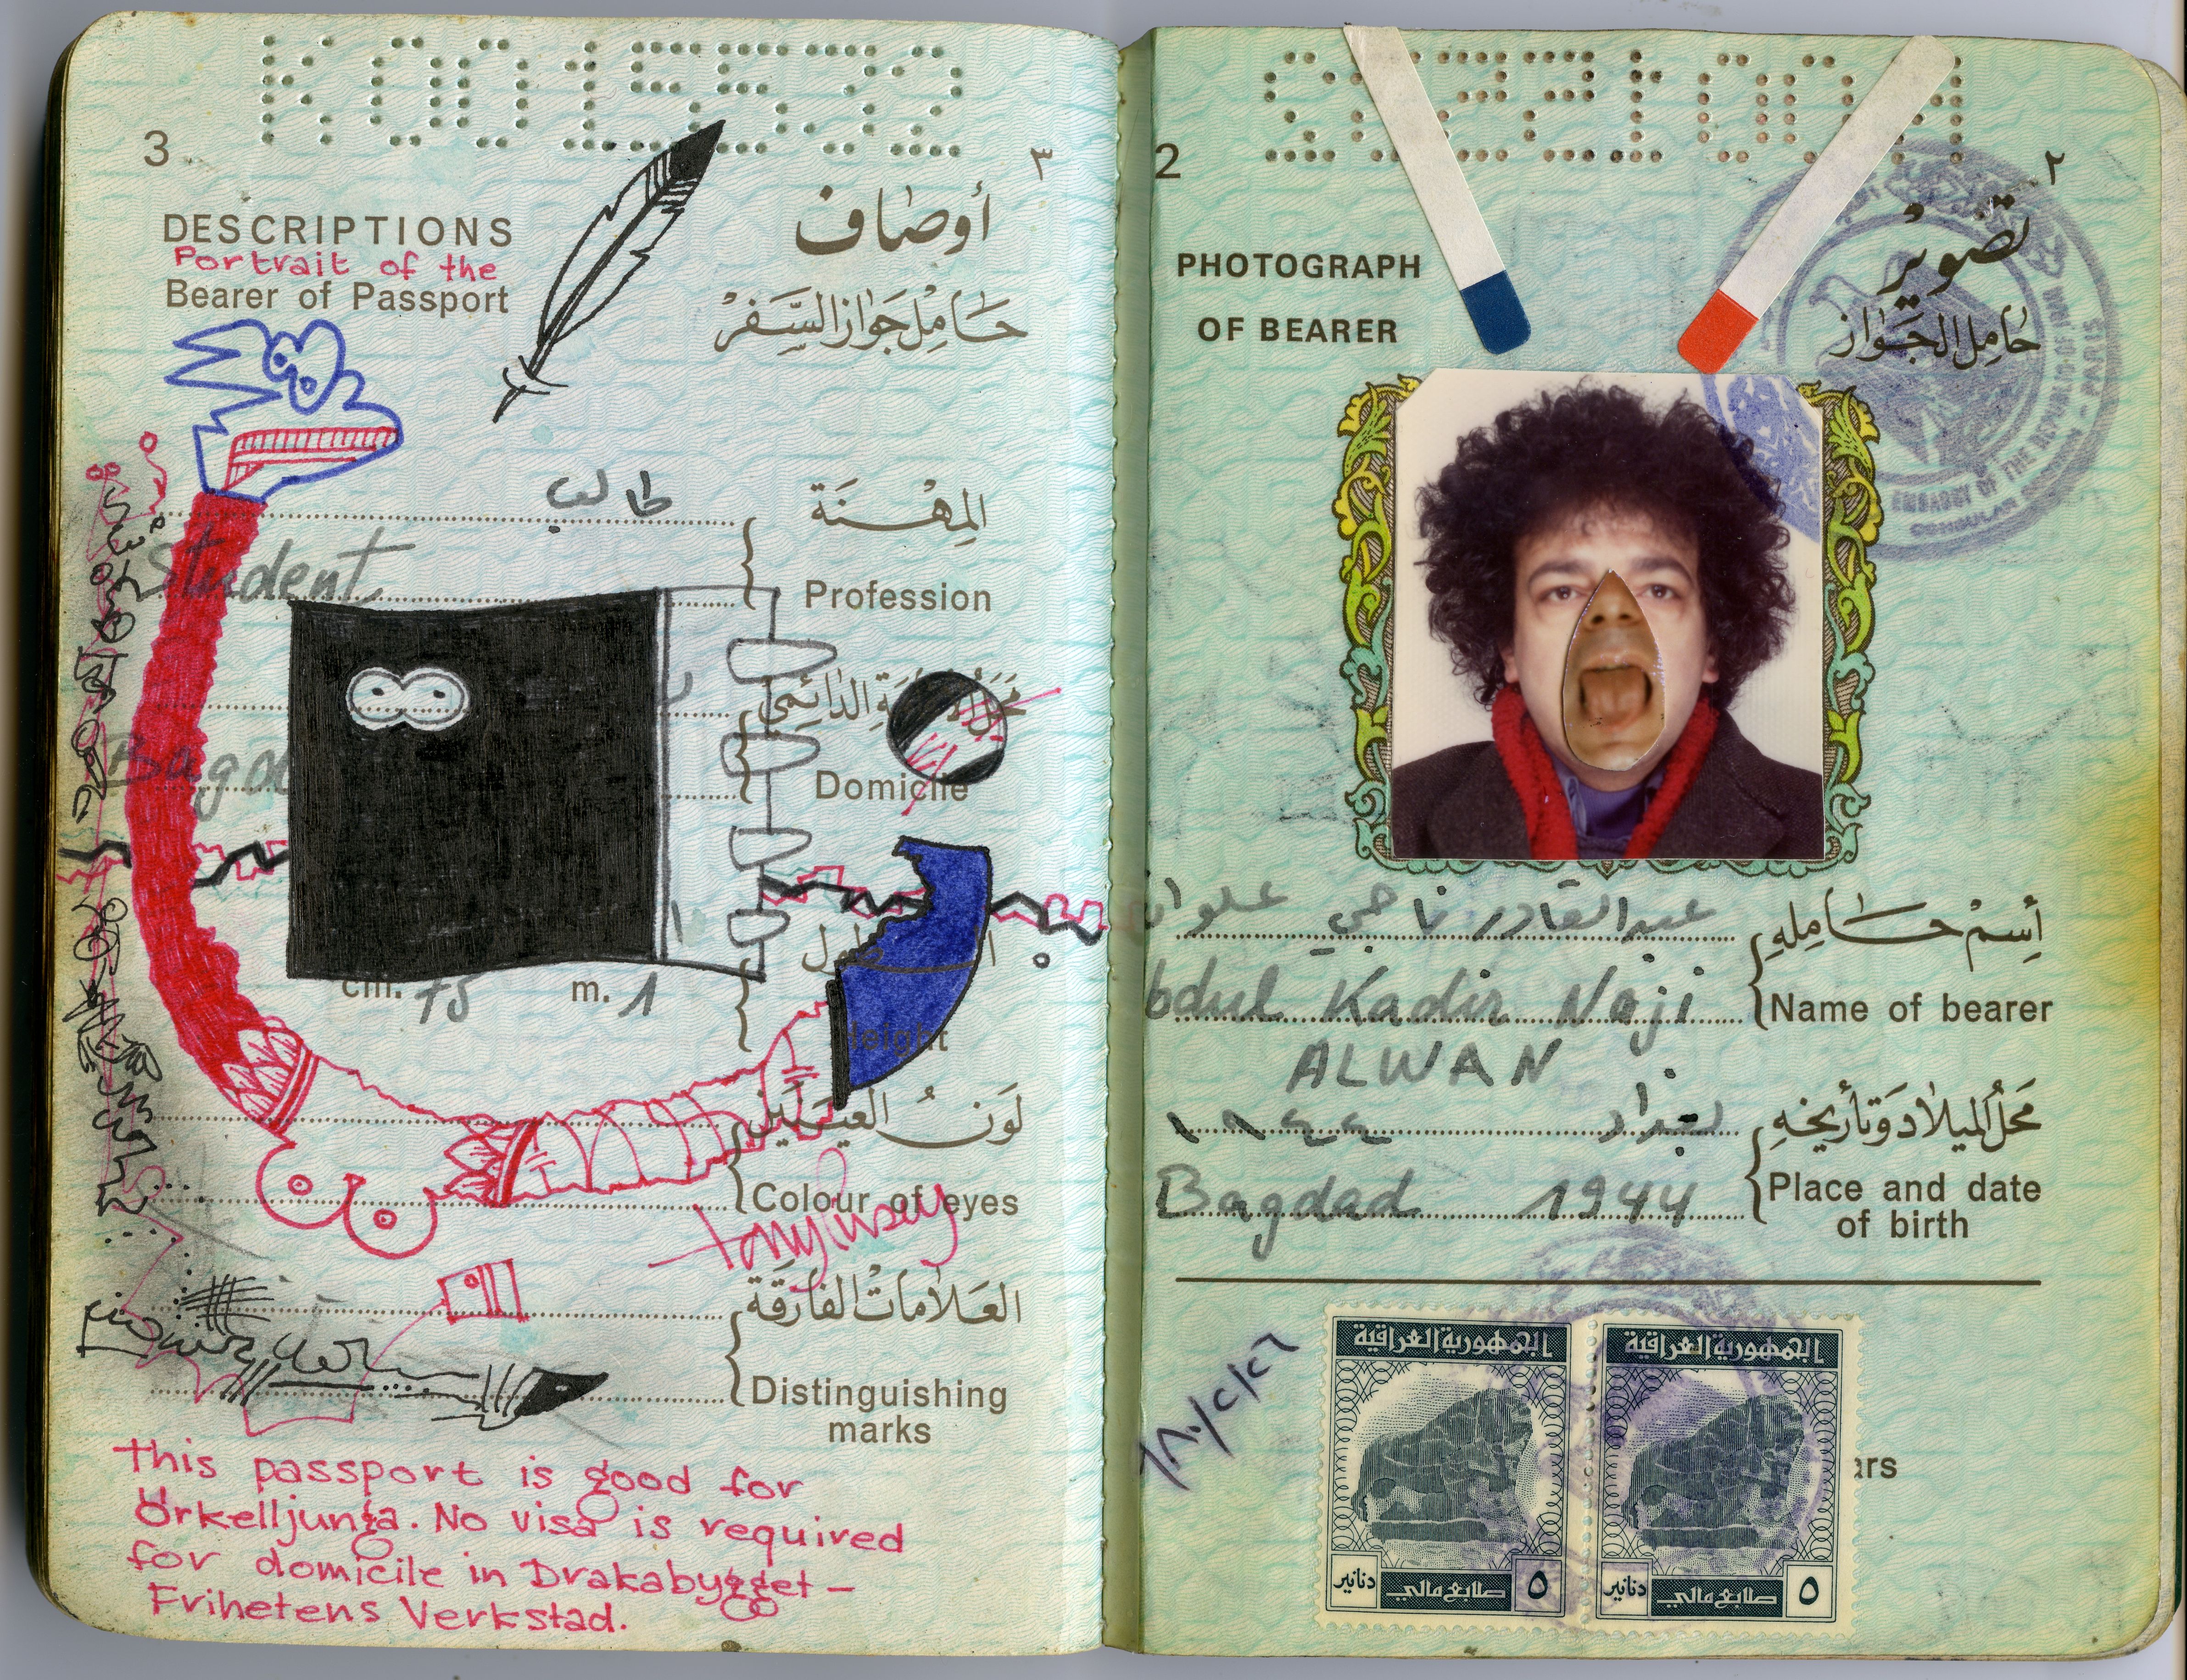 K0015532
3
٣
DESCRIPTIONS
Portrait of the
Bearer of Passport
أوصاف
حامل جواز السفر
طالب
المهنة
Student
Profession
Domicile
cm. 75 m. 1
Height
لون العينين
Colour of eyes
العلامات الفارقة
Distinguishing
marks
This passport is good for
Örkelljunga. No visa is required
for domicile in Drakabygget –
Frihetens Verkstad.
2
٢
PHOTOGRAPH
OF BEARER
تصوير
حامل الجواز
EMBASSY OF THE REPUBLIC OF IRAQ
CONSULAR SECTION – PARIS
عبدالقادر ناجي علوان
إسم حامله
bdul Kadir Naji
Name of bearer
ALWAN
بغداد
محل الميلاد وتأريخه
Bagdad 1944
Place and date
of birth
الجمهورية العراقية
٥ دنانير
طابع مالي
الجمهورية العراقية
٥ دنانير
طابع مالي
ars